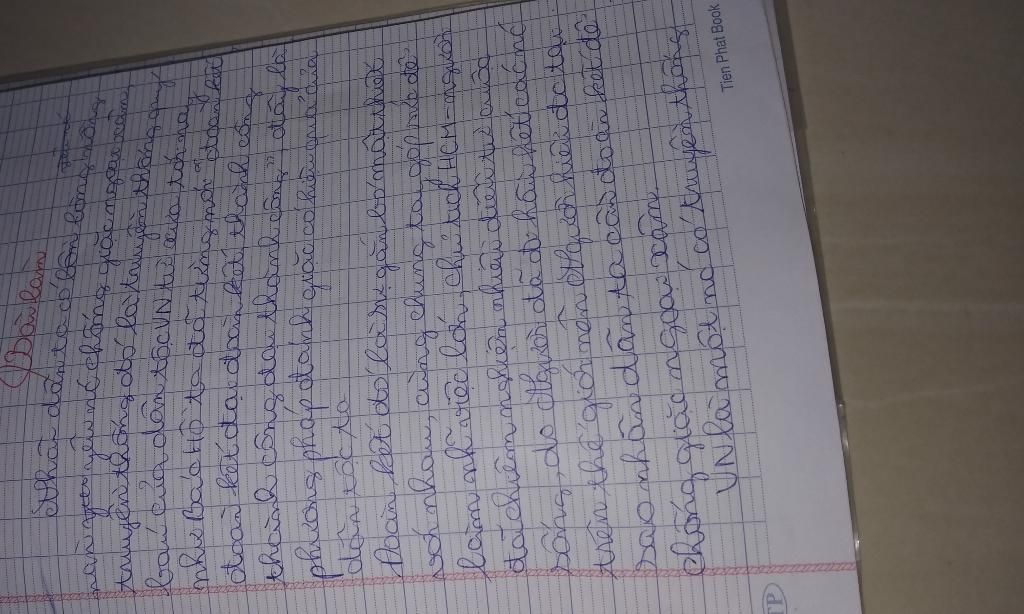 Bài làm
Nhân dân ta có tấm lòng nồng
nàn yêu nước chống giặc ngoại xâm,
truyền thống đó là truyền thống quý
báu của dân tộc VN ta xưa tới nay
như Bác Hồ ta đã từng nói "đoàn kết
đoàn kết đại đoàn kết thành công
thành công đại thành công" đây là
phương pháp đánh giặc có hiệu quả của
dân tộc ta
Đoàn kết đó là sự gắn bó mật thiết
với nhau, cùng chung tay góp sức để
làm nên việc lớn, chủ tịch HCM - người
đã chiêm nghiệm nhiều điều từ cuộc
sống, do Người đã đi hầu hết các nước
trên thế giới nên Người hiểu được tại
sao nhân dân ta cần đoàn kết để
chống giặc ngoại xâm.
VN là một nước có truyền thống
Tien Phat Book
TP